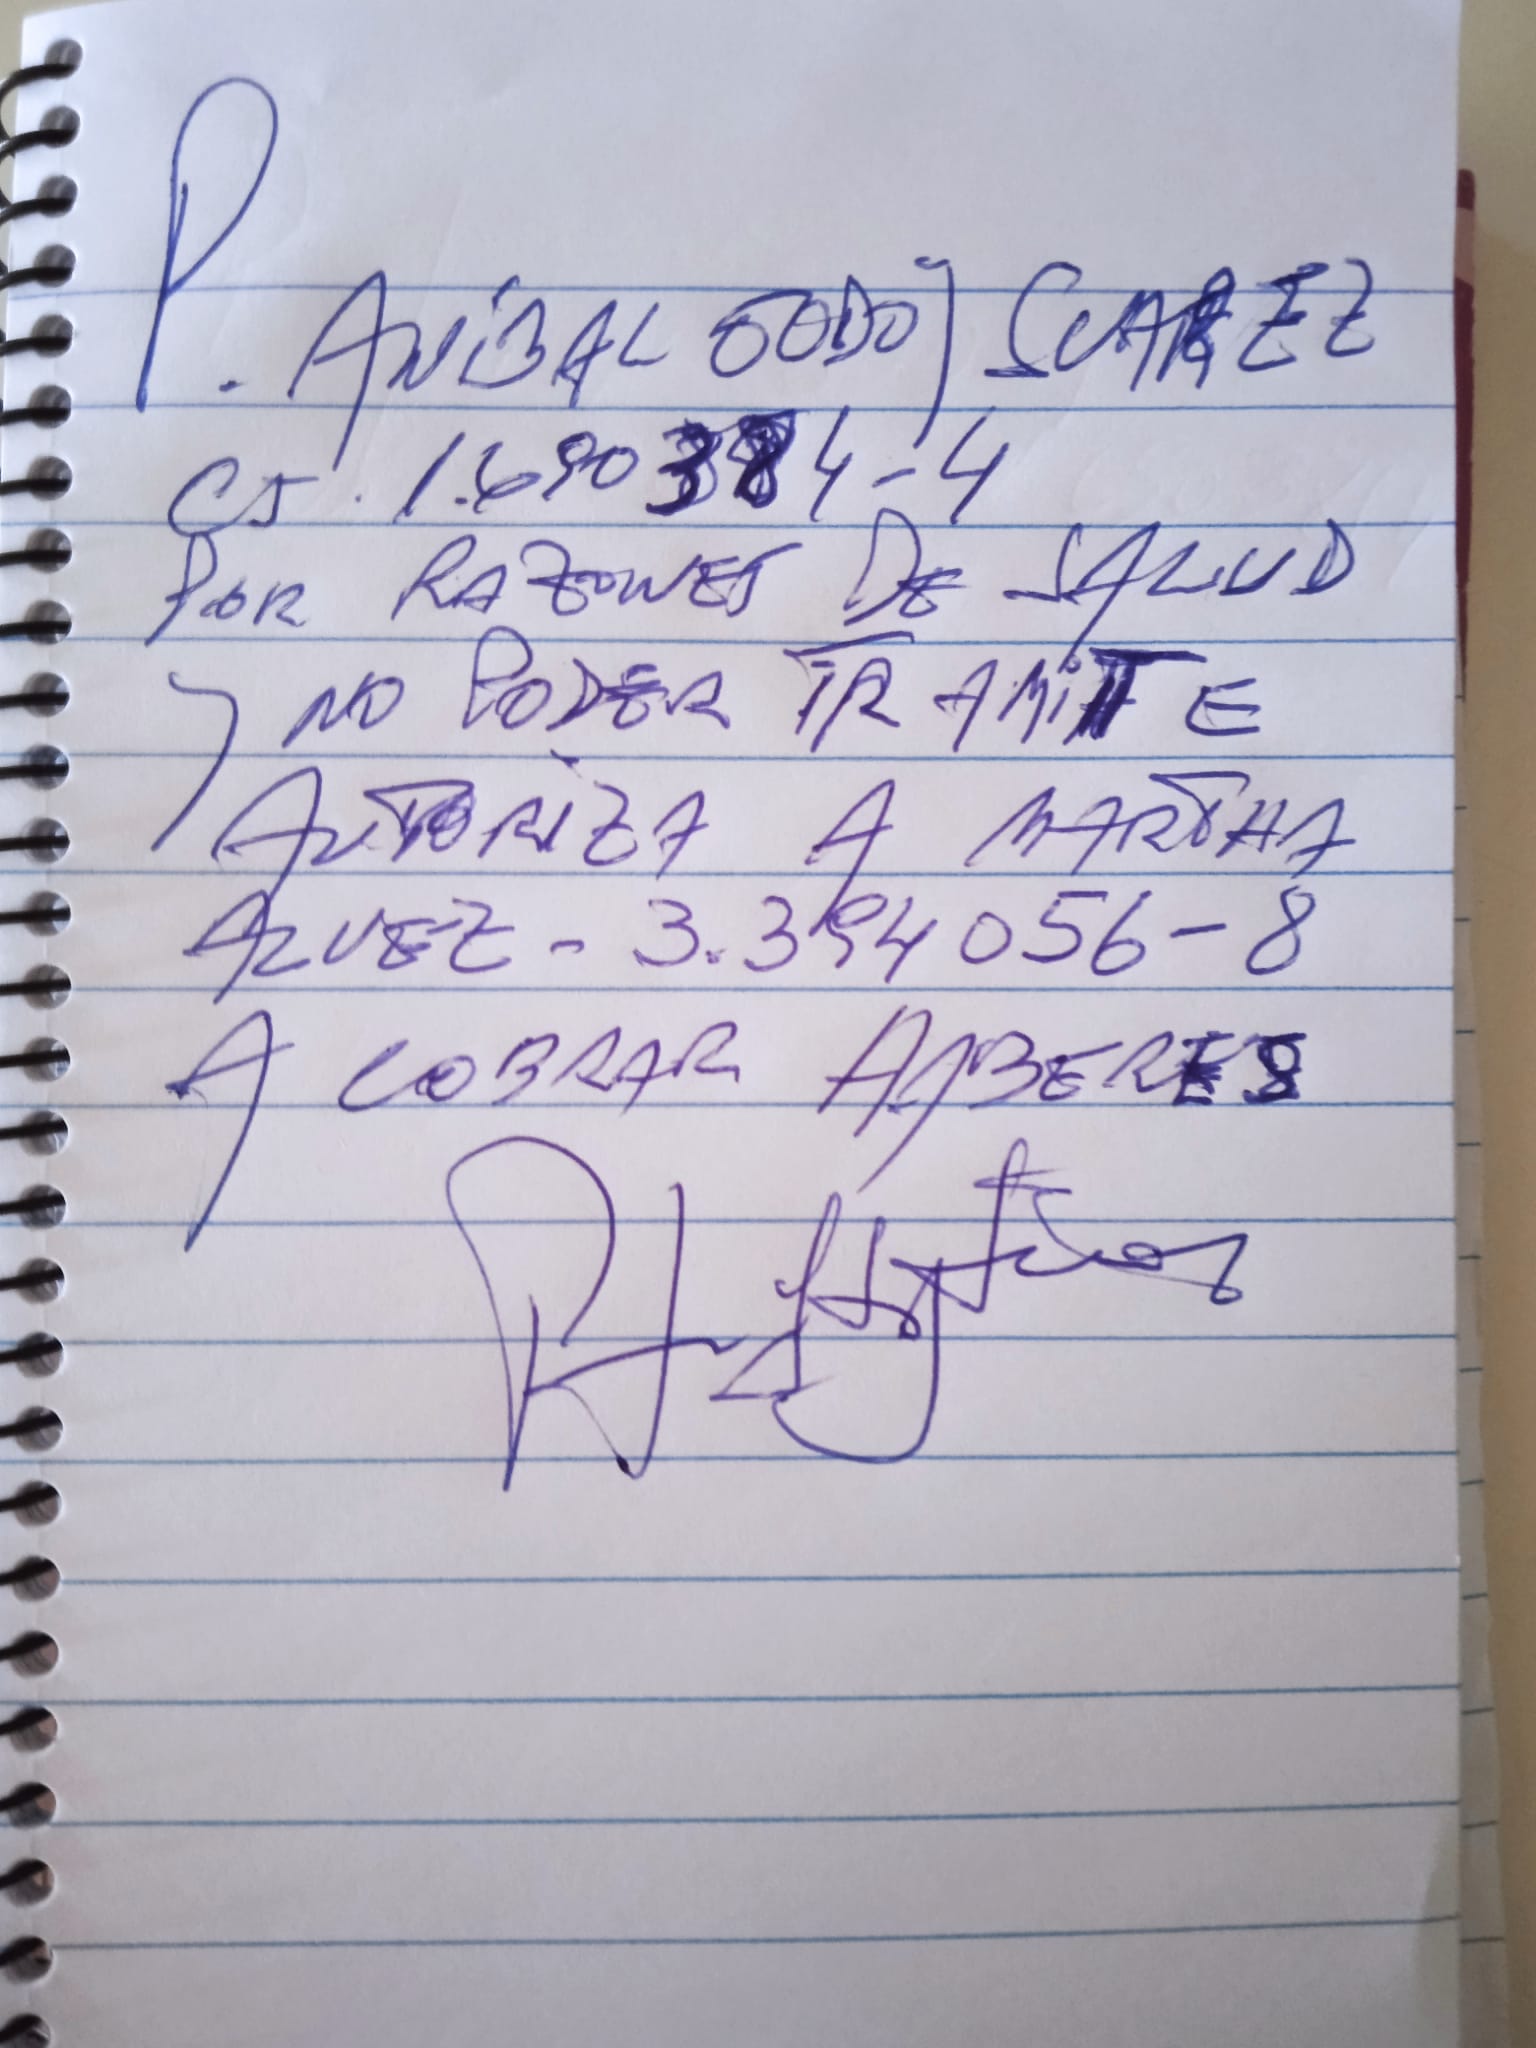 P. ANIBAL GODOY SUAREZ
CI. 1.690384-4
POR RAZONES DE SALUD
Y NO PODER TRAMITE
AUTORIZA A MARTHA
ALVEZ - 3.394056-8
A COBRAR AABERES